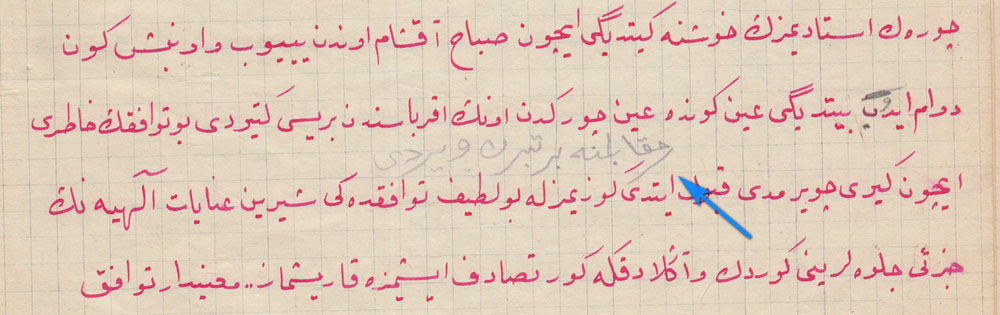 چوره ك استاديمزك خوشنه كيتديگى ايچون صباح آقشام اوندن يييوب و اون بش كون
دوام ايدوب بيتديگى عين كونده عين چوركدن اونك اقرباسندن بريسى كتيردى بو توافقك خاطرى
مقابلنه بر تبرك ويردى
ايچون كيرى چويرمدى قبول ايتدى كوزيمزله بو لطيف توافقده كى شيرين عنايات آلهيه نك
جزئى جلوه لرينى كوردك و آكلادقكه كور تصادف ايشمزه قاريشماز.. معنيدار توافق